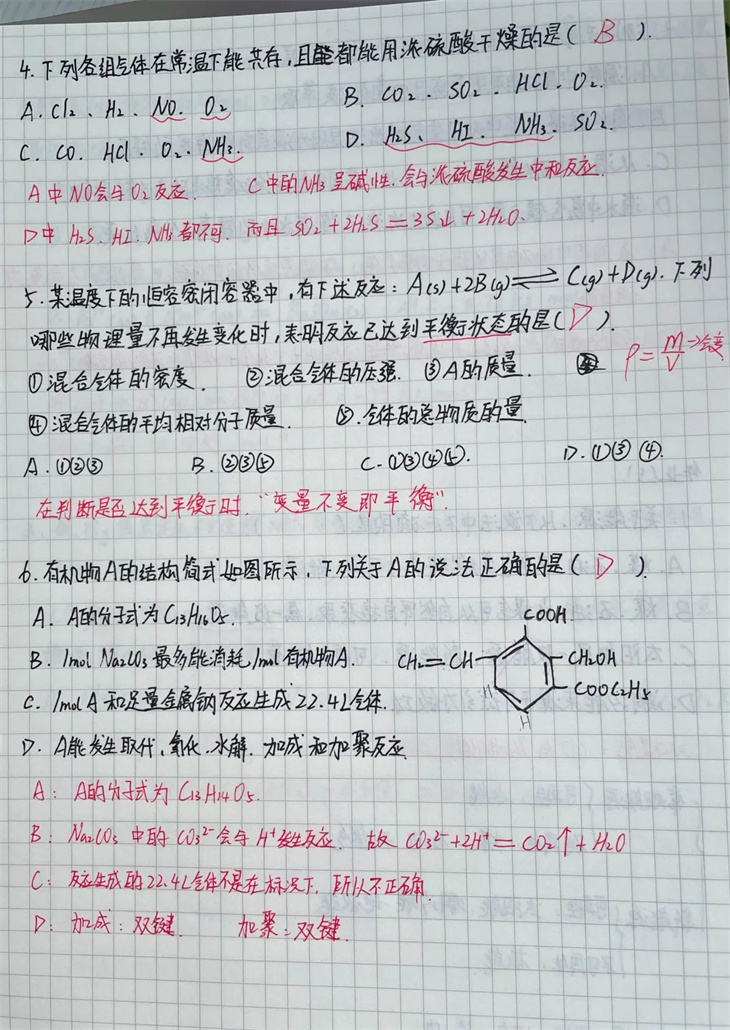 4. 下列各组气体在常温下能共存,且能都能用浓硫酸干燥的是( B ).
A. Cl₂、H₂、NO、O₂ B. CO₂、SO₂、HCl、O₂.
C. CO、HCl、O₂、NH₃. D. H₂S、HI、NH₃、SO₂.
A中NO会与O₂反应. C中的NH₃呈碱性,会与浓硫酸发生中和反应.
D中 H₂S、HI、NH₃都不可. 而且 SO₂+2H₂S=3S↓+2H₂O.
5. 某温度下的恒容密闭容器中,有下述反应:A(s)+2B(g)⇌C(g)+D(g). 下列
哪些物理量不再发生变化时,表明反应已达到平衡状态的是( D ).
①混合气体的密度. ②混合气体的压强. ③A的质量. ρ=m/V→会变
④混合气体的平均相对分子质量. ⑤.气体的总物质的量.
A. ①②③ B. ②③⑤ C. ①③④⑤. D. ①③④.
在判断是否达到平衡时,“变量不变即平衡”.
6. 有机物A的结构简式如图所示,下列关于A的说法正确的是( D ).
A. A的分子式为C₁₃H₁₆O₅.
COOH
B. 1mol Na₂CO₃最多能消耗1mol有机物A.
CH₂=CH
CH₂OH
C. 1molA和足量金属钠反应生成22.4L气体.
COOC₂H₅
H
H
D. A能发生取代、氧化、水解、加成和加聚反应
A: A的分子式为C₁₃H₁₄O₅.
B: Na₂CO₃中的CO₃²⁻会与H⁺发生反应. 故 CO₃²⁻+2H⁺=CO₂↑+H₂O
C: 反应生成的22.4L气体不是在标况下,所以不正确.
D: 加成:双键. 加聚:双键.